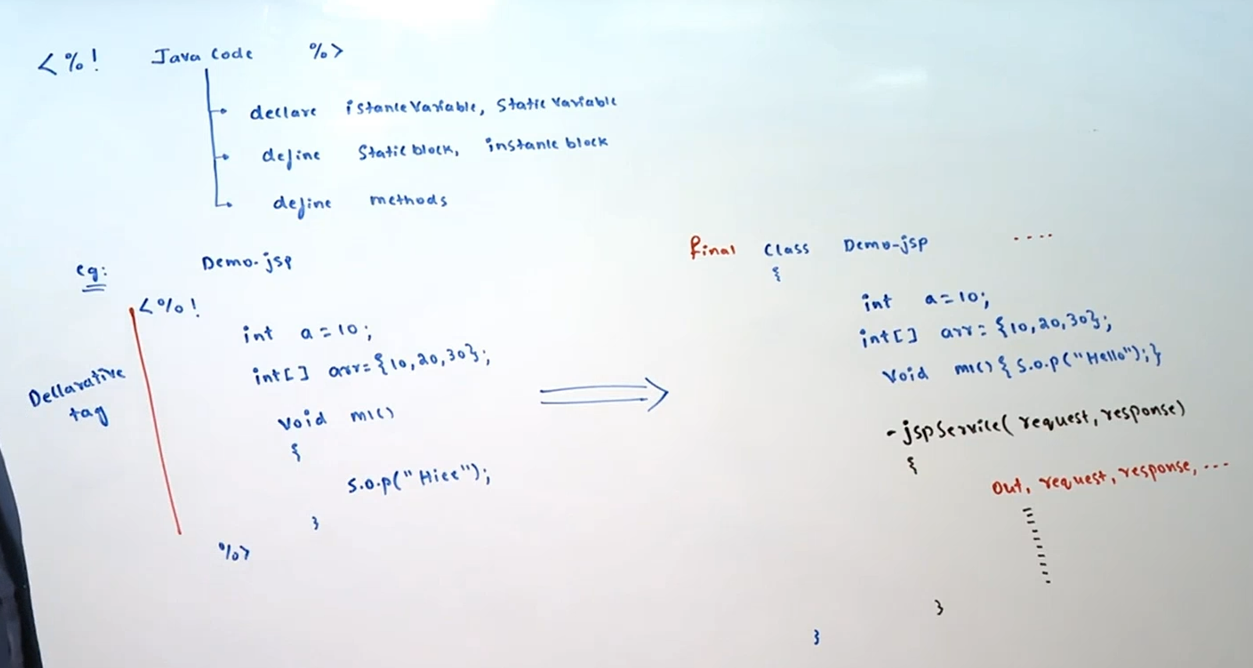 <%! Java Code %>
declare istance Variable, Static Variable
define Static block, instance block
define methods
eg: Demo.jsp
<%!
int a = 10;
int[] arr = {10,20,30};
void m1()
{
S.o.p("Hiee");
}
%>
Declarative
tag
final Class Demo-jsp ....
{
int a = 10;
int[] arr = {10,20,30};
Void m1() { S.o.p("Hello"); }
-jspService( request, response)
{
Out, request, response, ...
}
}